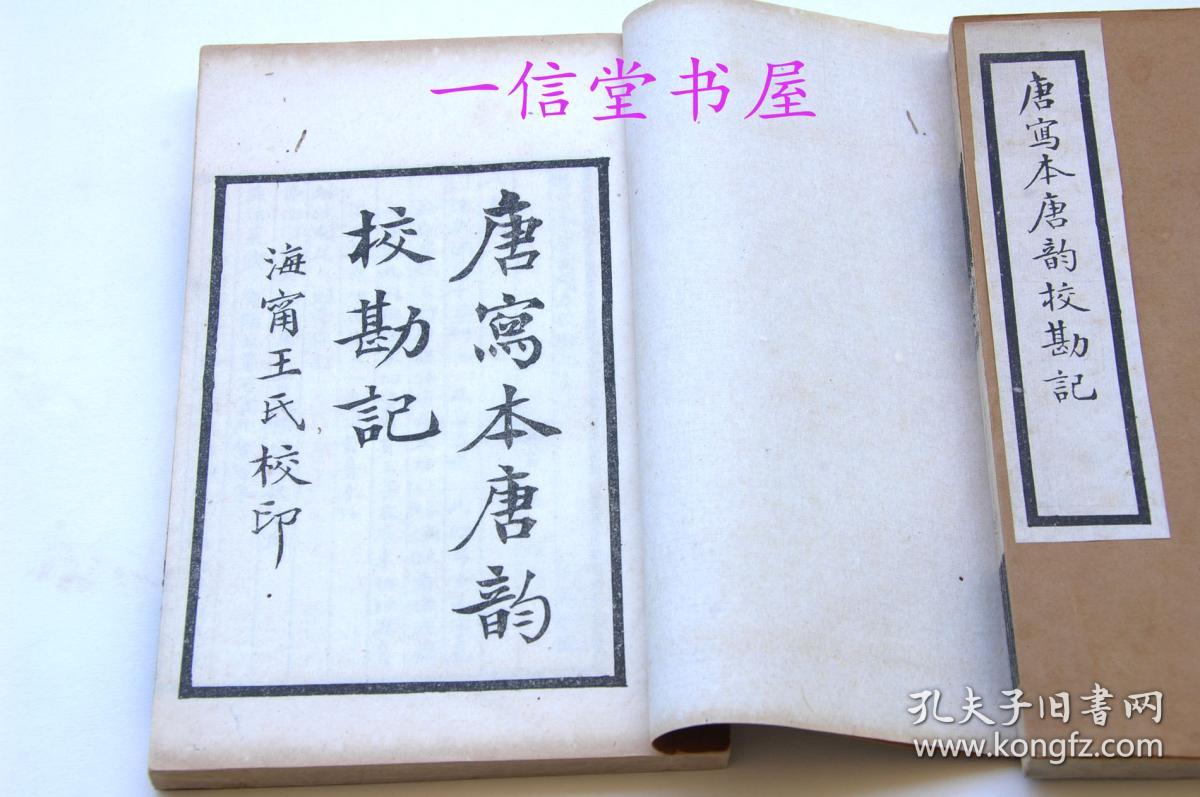 一信堂书屋
唐寫本唐韵
校勘記
海甯王氏校印
唐寫本唐韵校勘記
孔夫子旧书网
www.kongfz.com